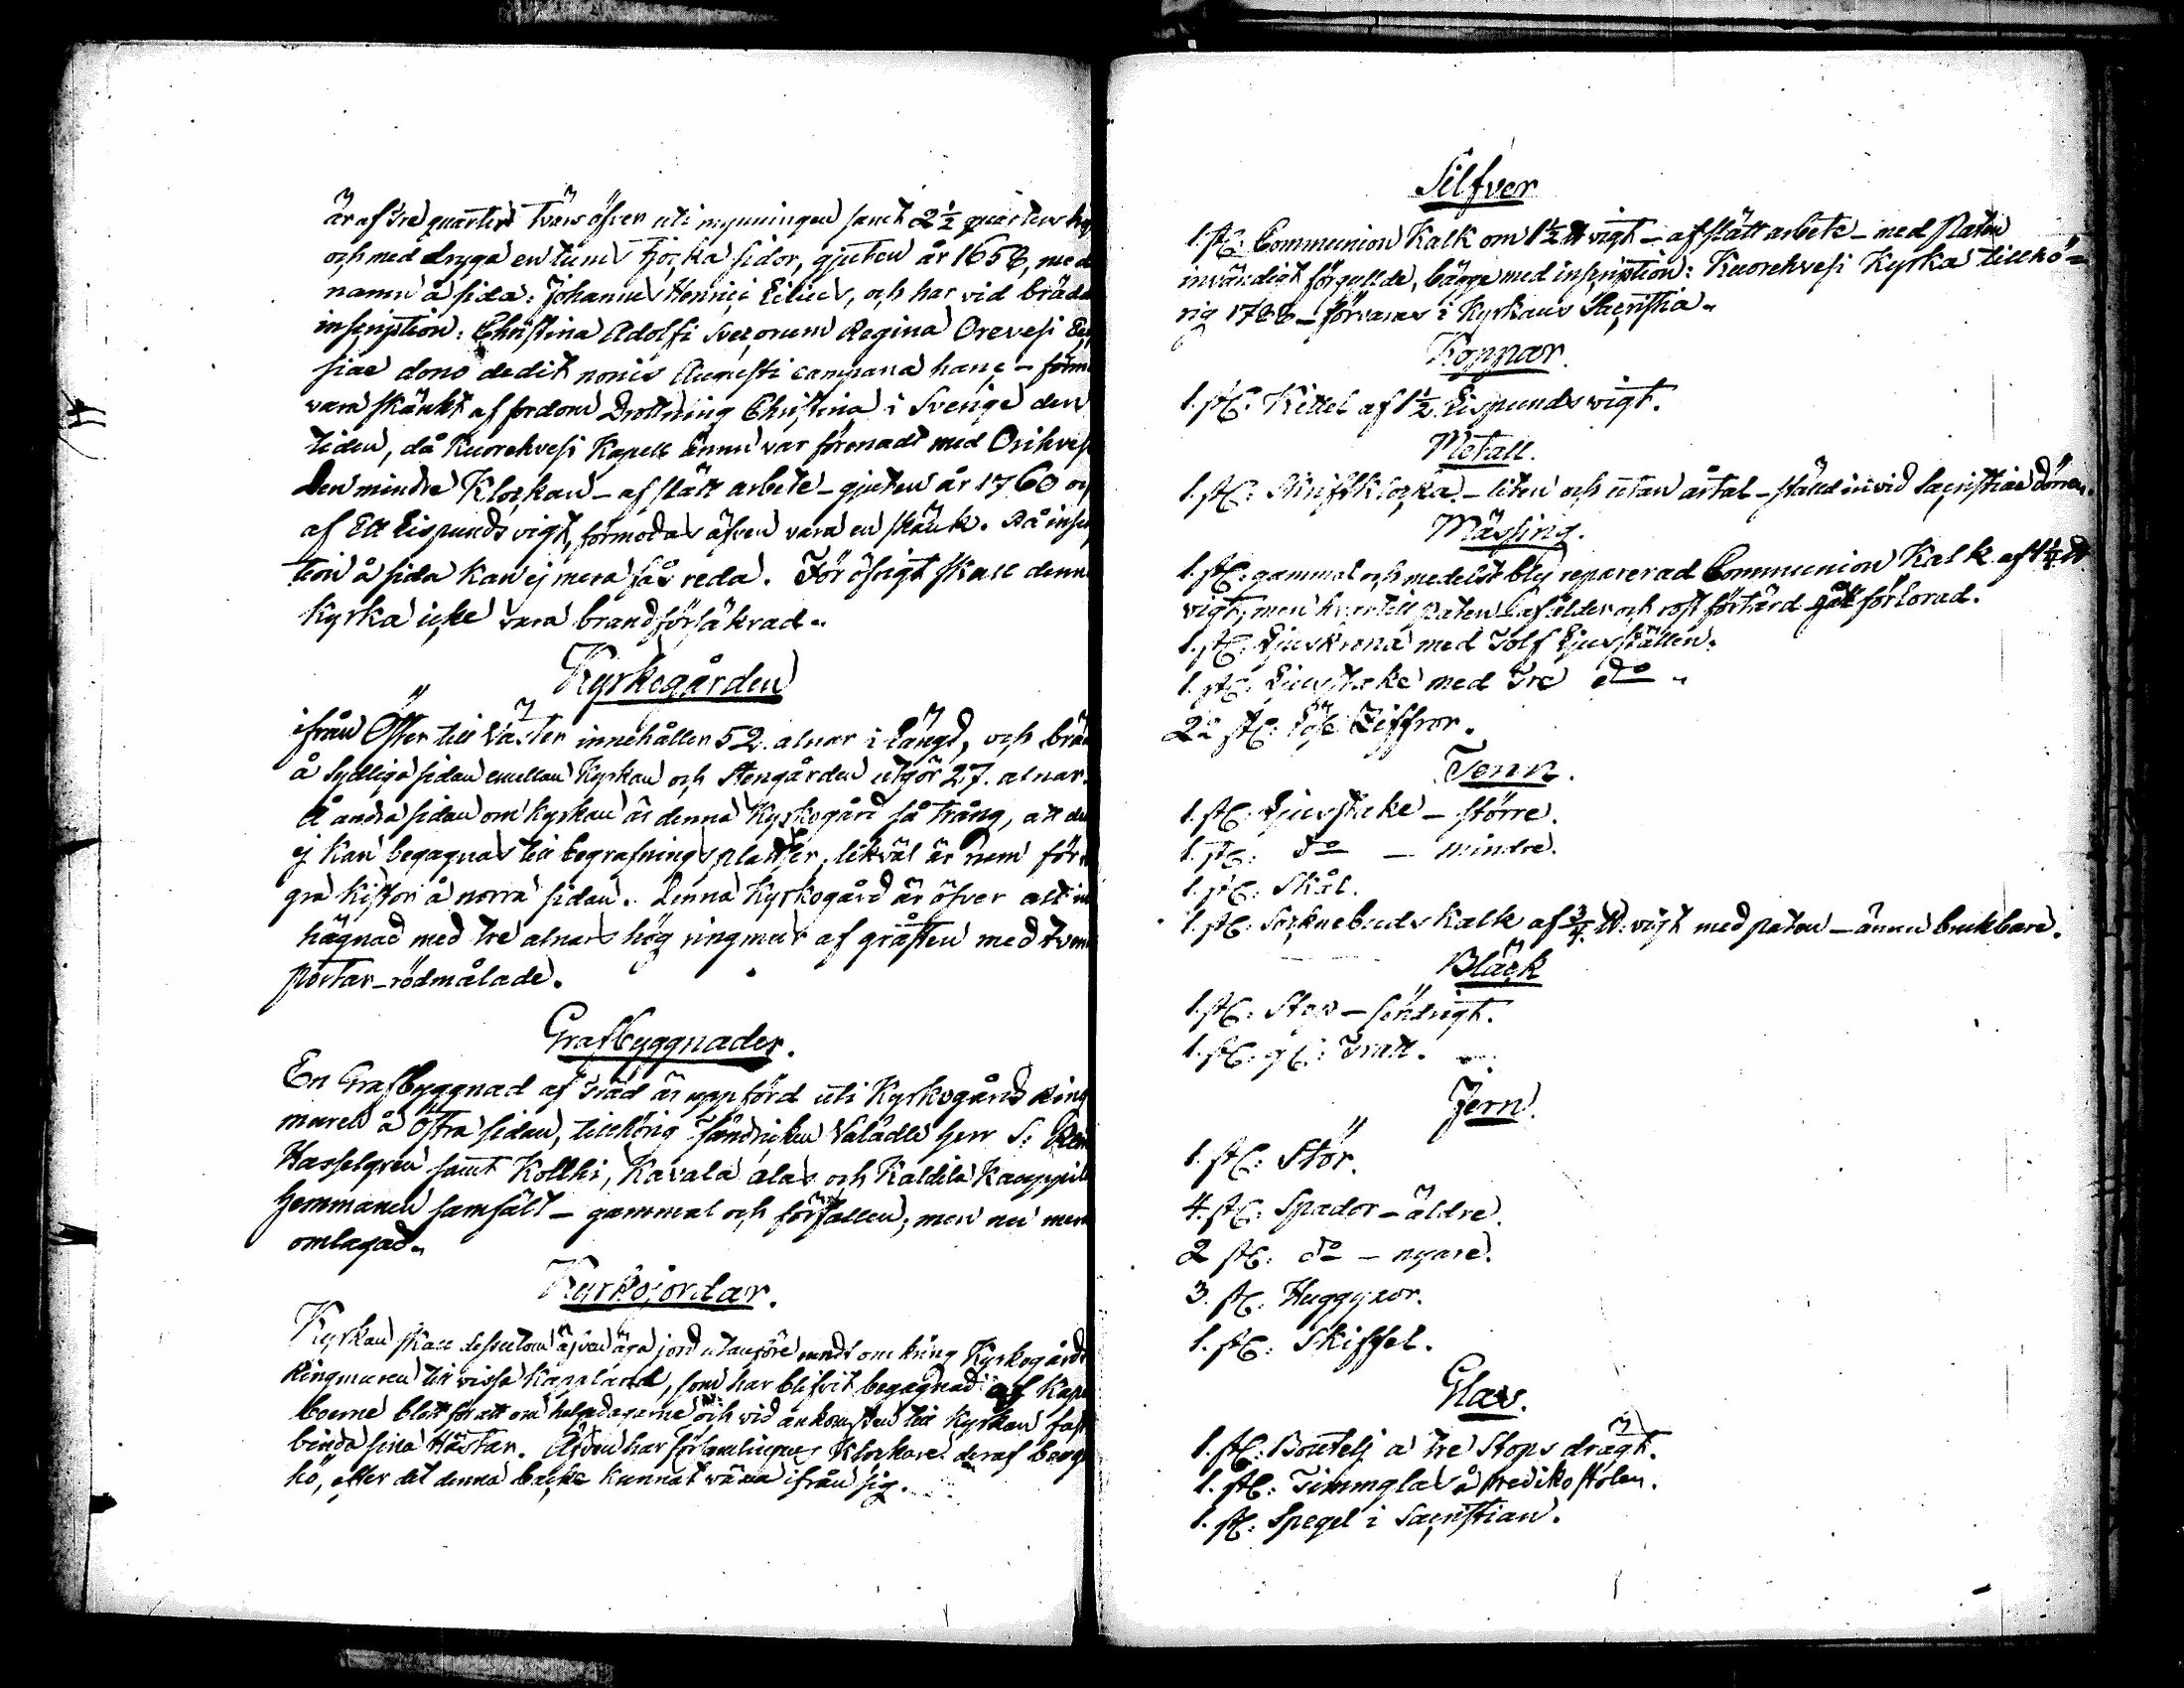 är af tre quarter tvärs öfver uti mynningen samt 2½ quarters hög
och med dryga en tums tjocka sidor, gjuten år 1658, med
namn å sida: Johannes Henrici Eilius, och har vid brädd
inscription: Christina Adolfi Svecorum Regina Orevesi Ecc
siae dono dedit nonis Augusti campana hanc – förm
vara skänkt af fordom Drottning Christina i Sverige den
tiden, då Kuorehvesi Kapell ännu var förenadt med Orihves
Den mindre Klockan – af slätt arbete – gjuten år 1760 oc
af Ett Lispunds vigt, förmodas äfven vara en skänk. På inscr
tion å sida kan ej mera fås reda. För öfrigt skall denna
Kyrka icke vara brandförsäkrad.
Kyrkogården
ifrån Öster till Väster innehåller 52. alnar i Längd, och bräd
å sydliga sidan emellan Kyrkan och Stengården utgör 27. alnar.
Å andra sidan om Kyrkan är denna Kyrkogård så trång, att den
ej kan begagnas till begrafningsplatser, likväl är rum för
gra Kistor å norra sidan. Denna Kyrkogård är öfver alt in
hägnad med tre alnars hög ringmur af gråsten med tven
portar – rödmålade.
Grafbyggnader.
En Grafbyggnad af träd är uppförd uti Kyrkogårds Ring
muren å Östra sidan, tillhörig Fändricken Välädle Herr S:
Hasselgren samt Kollhi, Kavala alas och Kaldila Kauppila
hemmanen samfält – gammal och förfallen; men nu mera
omlagad.
Kyrkojordar.
Kyrkan skall dessutom äfven äga jord utanföre rundt omkring Kyrkogårds
Ringmuren till vissa Kappland, som har blifvit begagnad af Kape
boerne blott för att om helgedagarne och vid ankomsten till Kyrkan fast
binda sina Hästar. Äfven har församlingens Klockare deraf berg
hö, efter det denna backe kunnat växa ifrån sig.
Silfver
1. st: Communion Kalk om 1½ ℔ vigt – af slätt arbete – med Paten
invändigt förgyllde, bägge med inscription: Kuorehvesi Kyrka tillhö=
rig 1788 – förvaras i Kyrkans Sacristia.
Koppar.
1. st: Kittel af 1½ Lispunds vigt.
Metall.
1. st: Skriftklocka – liten och utan årtal – ställd invid Sacristiae dörren.
Mässing.
1. st: gammal och medelst bly reparerad Communion Kalk af 1¼ ℔
vigt, men hvartill Paten af ålder och rost förtärd gått förlorad.
1. st: Ljuskrona med Tolf Ljusställen.
1. st: Ljusstake med Tre do
22 st: löse Ziffror.
Tenn.
1. st: Ljusstake – större.
1. st: do – mindre.
1. st: Skål.
1. st: Socknebuds Kalk af ¾ ℔: vigt med paten – ännu brukbare.
Bläck
1. st: Stop – söndrigt.
1. st: gl: Tratt.
Jern.
1. st: Stör.
4. st: Spador – äldre.
2 st: do – nyare.
3. st: Huggyxor.
1. st: Skiffel.
Glas.
1. st: Boutelj a tre Stops drägt.
1. st: Timmglas å Predikostolen.
1. st: Spegel i Sacristian.